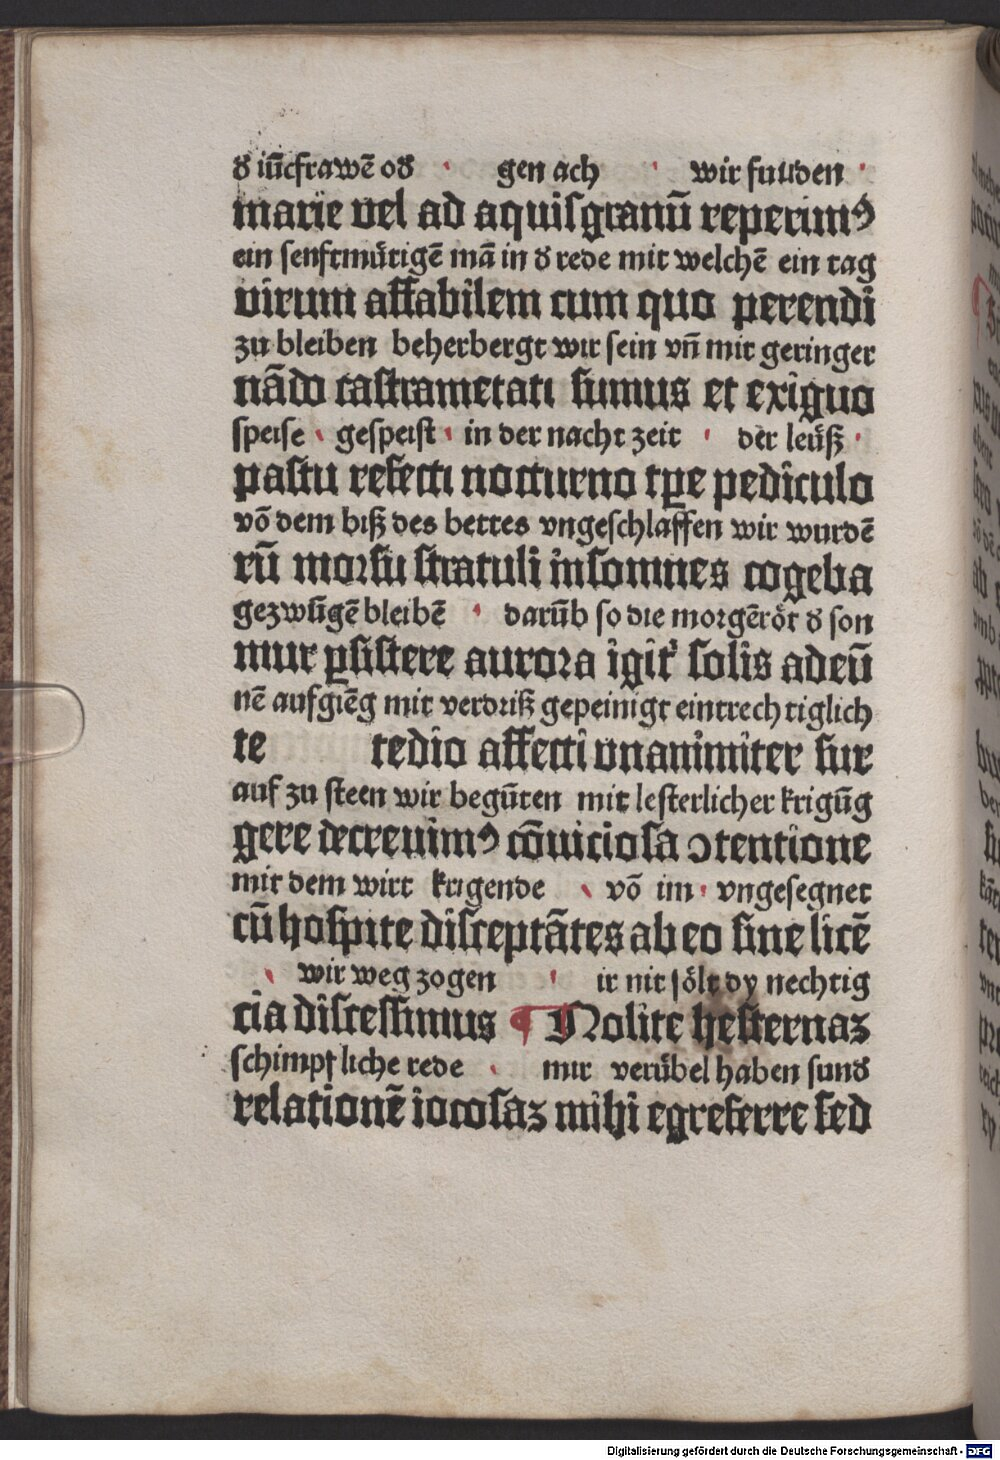 d̕ iūcfrawē od̕ gen ach wir funden
marie vel ad aquisgranū reperimꝰ
ein senftmütigē mā in d̕ rede mit welchē ein tag
virum affabilem cum quo perendi
zu bleiben beherbergt wir sein vn̄ mit geringer
nādo castrametati sumus et exiguo
speise gespeist in der nacht zeit der leüß
pastu refecti nocturno tꝑe pediculo
vō dem biß des bettes vngeschlaffen wir wurdē
rū morsu stratuli insomnes cogeba
gezwūgē bleibē darūb so die morgēröt d̕ son
mur ꝑsistere aurora igit᷑ solis adeū
nē aufgiēg mit verdriß gepeinigt eintrechtiglich
te tedio affecti vnanimiter sur
auf zu steen wir begūten mit lesterlicher krigūg
gere decreuimꝰ cōuiciosa ↄtentione
mit dem wirt krigende vō im vngesegnet
cū hospite disceptātes ab eo sine licē
wir weg zogen ir nit sölt dy nechtig
cia discessimus ¶ Nolite hesternas
schimpfliche rede mir verübel haben sund̕
relationē iocosaz mihi egreferre sed
Digitalisierung gefördert durch die Deutsche Forschungsgemeinschaft - DFG